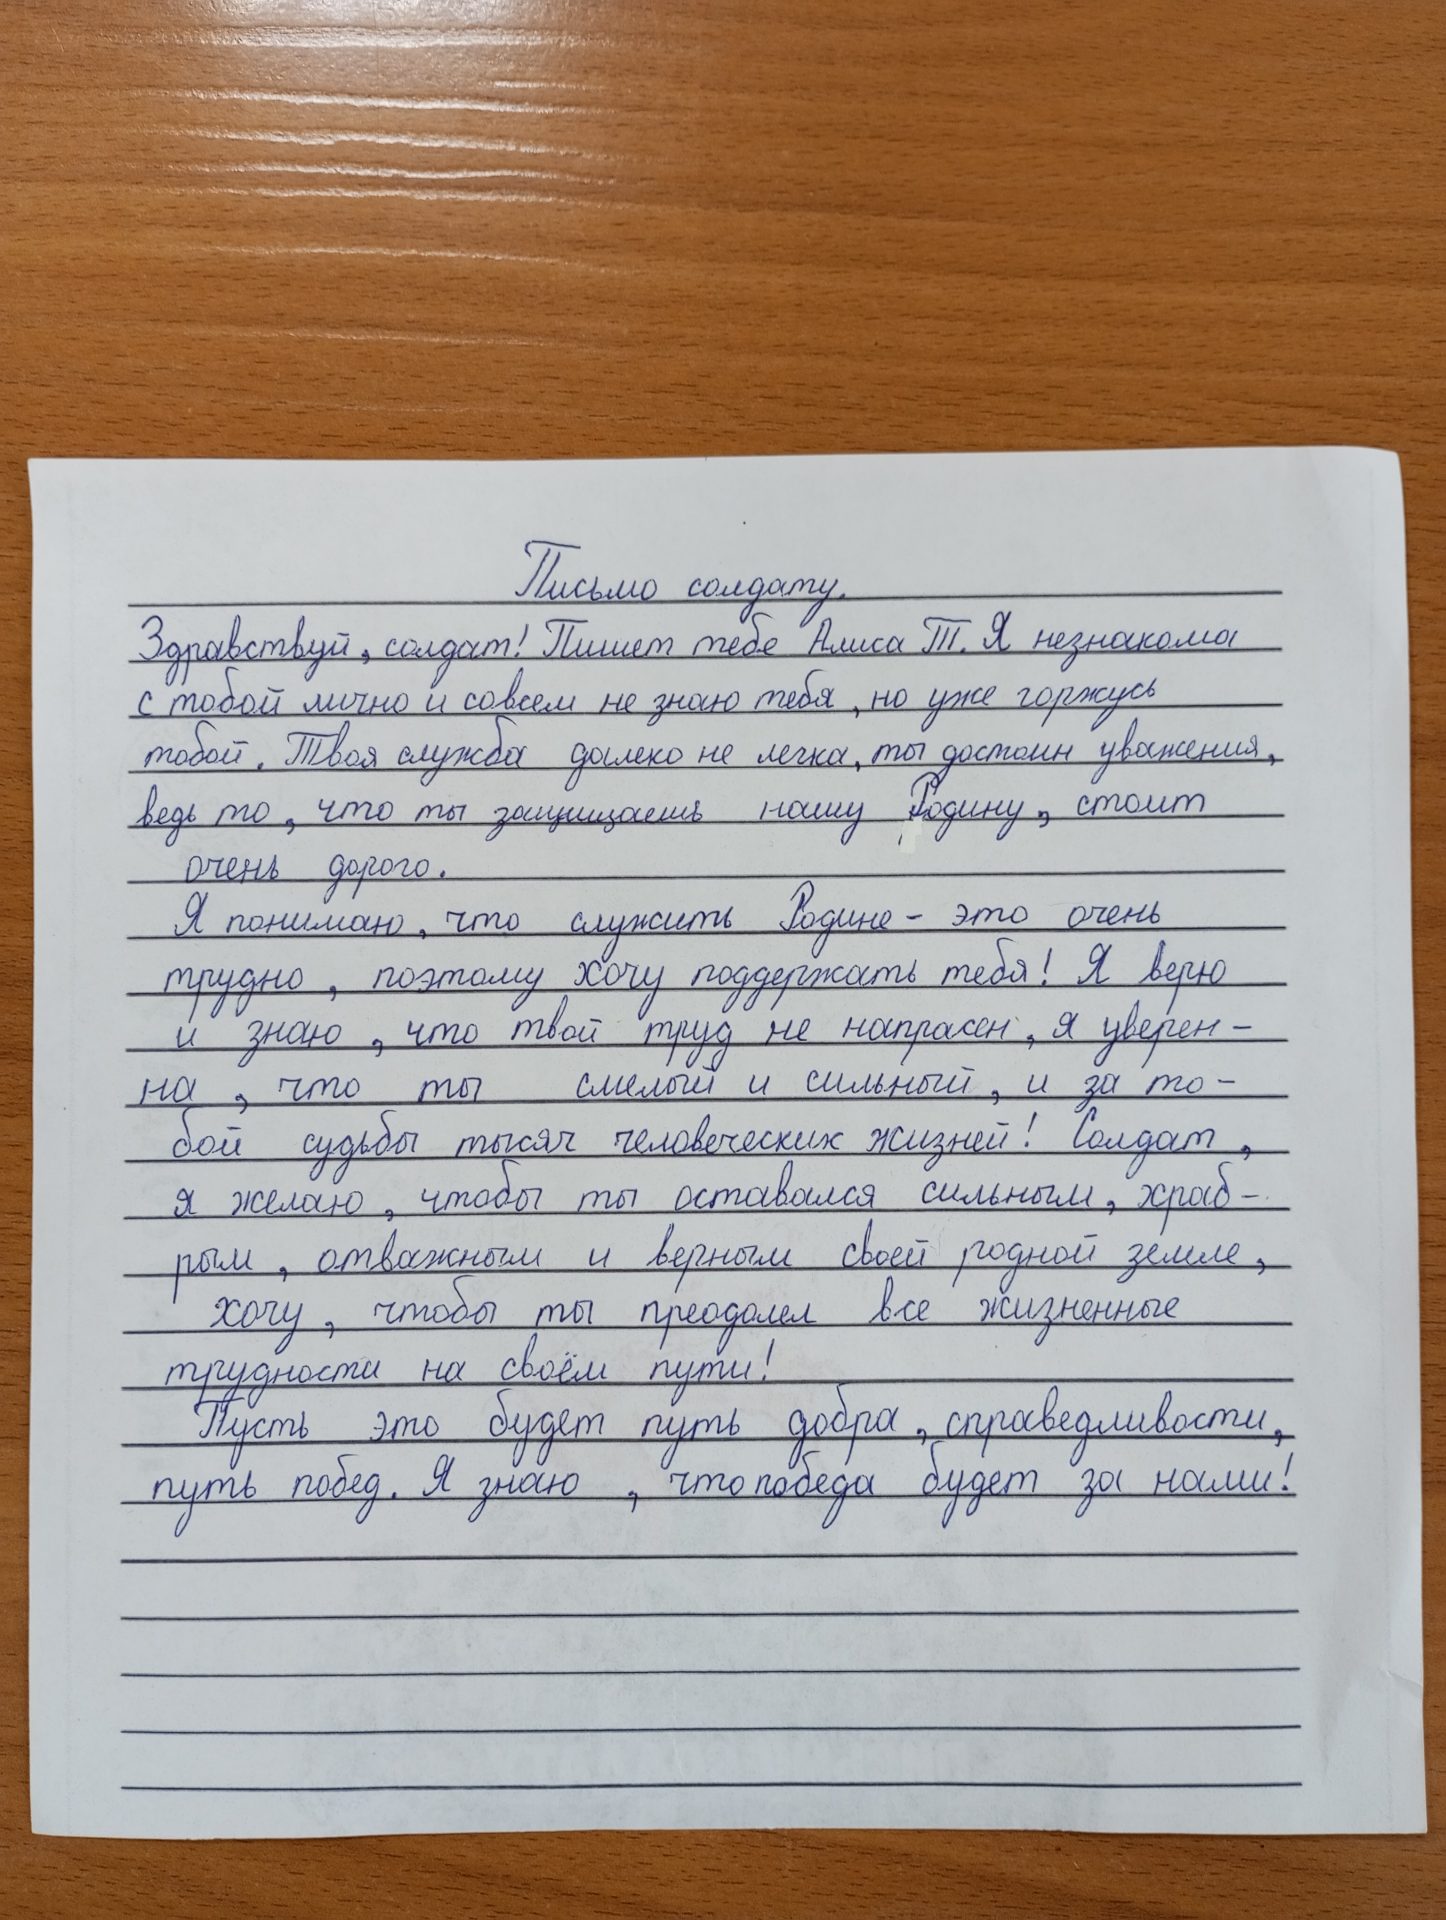 Письмо солдату.
Здравствуй, солдат! Пишет тебе Алиса Т. Я незнакома
с тобой лично и совсем не знаю тебя, но уже горжусь
тобой. Твоя служба далеко не легка, ты достоин уважения,
ведь то, что ты защищаешь нашу Родину, стоит
очень дорого.
Я понимаю, что служить Родине - это очень
трудно, поэтому хочу поддержать тебя! Я верю
и знаю, что твой труд не напрасен, я уверен-
на, что ты смелый и сильный, и за то-
бой судьбы тысяч человеческих жизней! Солдат,
я желаю, чтобы ты оставался сильным, храб-
рым, отважным и верным своей родной земле,
хочу, чтобы ты преодолел все жизненные
трудности на своём пути!
Пусть это будет путь добра, справедливости,
путь побед. Я знаю, что победа будет за нами!